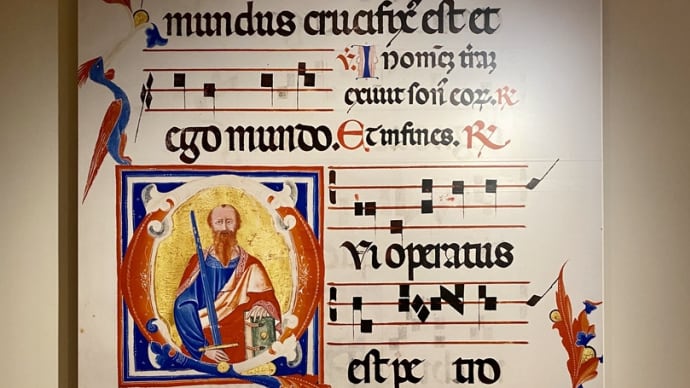 mundus crucifixꝰ est et
℣. I n omēꝫ t̄raꝫ
exiuit son eoꝝ. ℞
ego mundo. Et in fines. ℞
QVi operatus
est pe tro